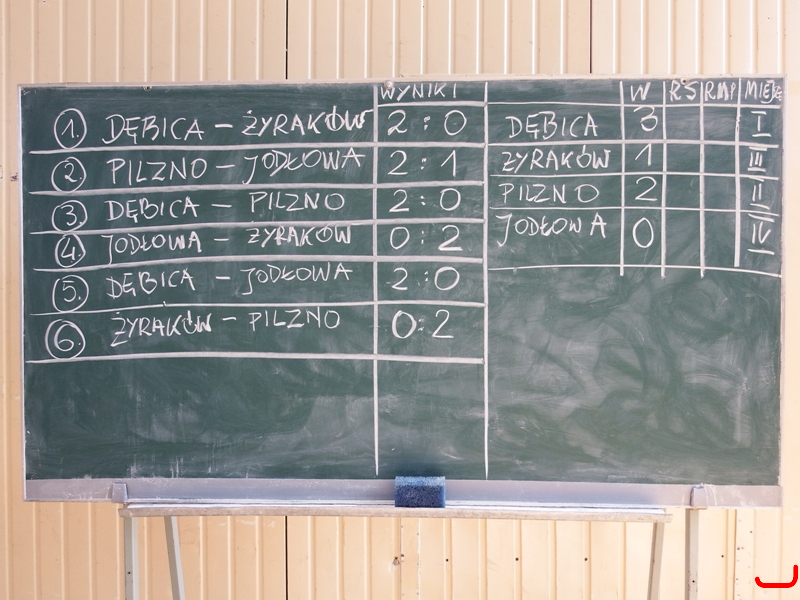 WYNIKI
1. DĘBICA – ŻYRAKÓW 2 : 0
2. PILZNO – JODŁOWA 2 : 1
3. DĘBICA – PILZNO 2 : 0
4. JODŁOWA – ŻYRAKÓW 0 : 2
5. DĘBICA – JODŁOWA 2 : 0
6. ŻYRAKÓW – PILZNO 0 : 2
W RS RMP
DĘBICA 3 I
ŻYRAKÓW 1 III
PILZNO 2 II
JODŁOWA 0 IV